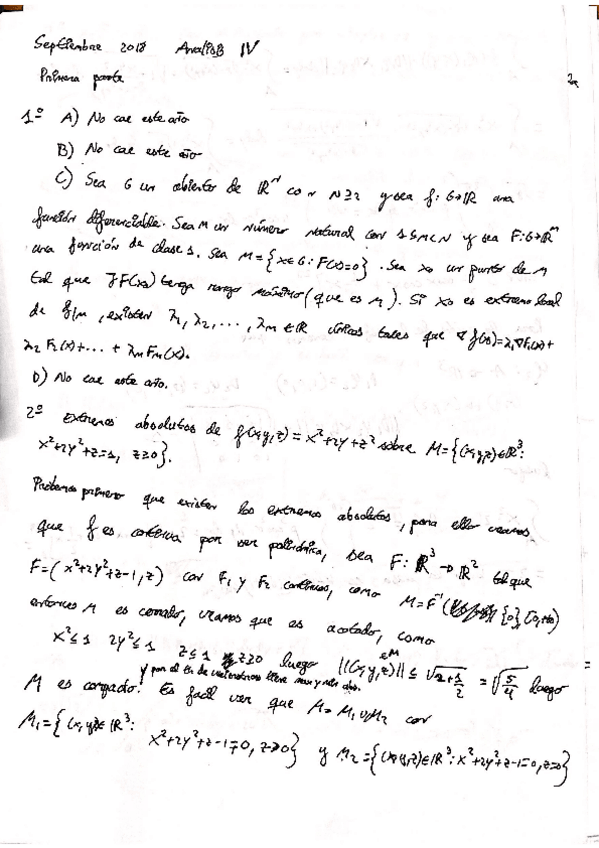 Septiembre 2018 Análisis IV
Primera parte
1º A) No cae este año
B) No cae este año
C) Sea G un abierto de ℝᴺ con N≥2 y sea f: G→ℝ una
función diferenciable. Sea m un número natural con 1≤m<N y sea F: G→ℝᵐ
una función de clase 1. Sea M={x∈G: F(x)=0}. Sea x₀ un punto de M
tal que JF(x₀) tenga rango máximo (que es m). Si x₀ es extremo local
de f|M, existen λ₁, λ₂, ..., λₘ ∈ℝ únicos tales que ∇f(x)=λ₁∇F₁(x)+
λ₂ F₂(x)+...+ λₘFₘ(x).
D) No cae este año.
2º Extremos absolutos de f(x,y,z)=x²+2y+z² sobre M={(x,y,z)∈ℝ³:
x²+2y²+z=1, z≥0}.
Probemos primero que existen los extremos absolutos, para ello veamos
que f es continua por ser polinómica, sea F: ℝ³→ℝ² tal que
F=(x²+2y²+z-1, z) con F₁ y F₂ continuas, como M=F⁻¹({0}[0,+∞)
entonces M es cerrado, veamos que es acotado, como
x²≤1 2y²≤1 z≤1 z≥0 luego ||(x,y,z)|| ≤ √2+1/2 = √5/4 luego
∈M
y por el th de weierstrass
M es compacto. Es facil ver que M=M₁∪M₂ con
M₁={(x,y,z)∈ℝ³:
x²+2y²+z-1=0, z>0} y M₂={(x,y,z)∈ℝ³: x²+2y²+z-1=0, z=0}